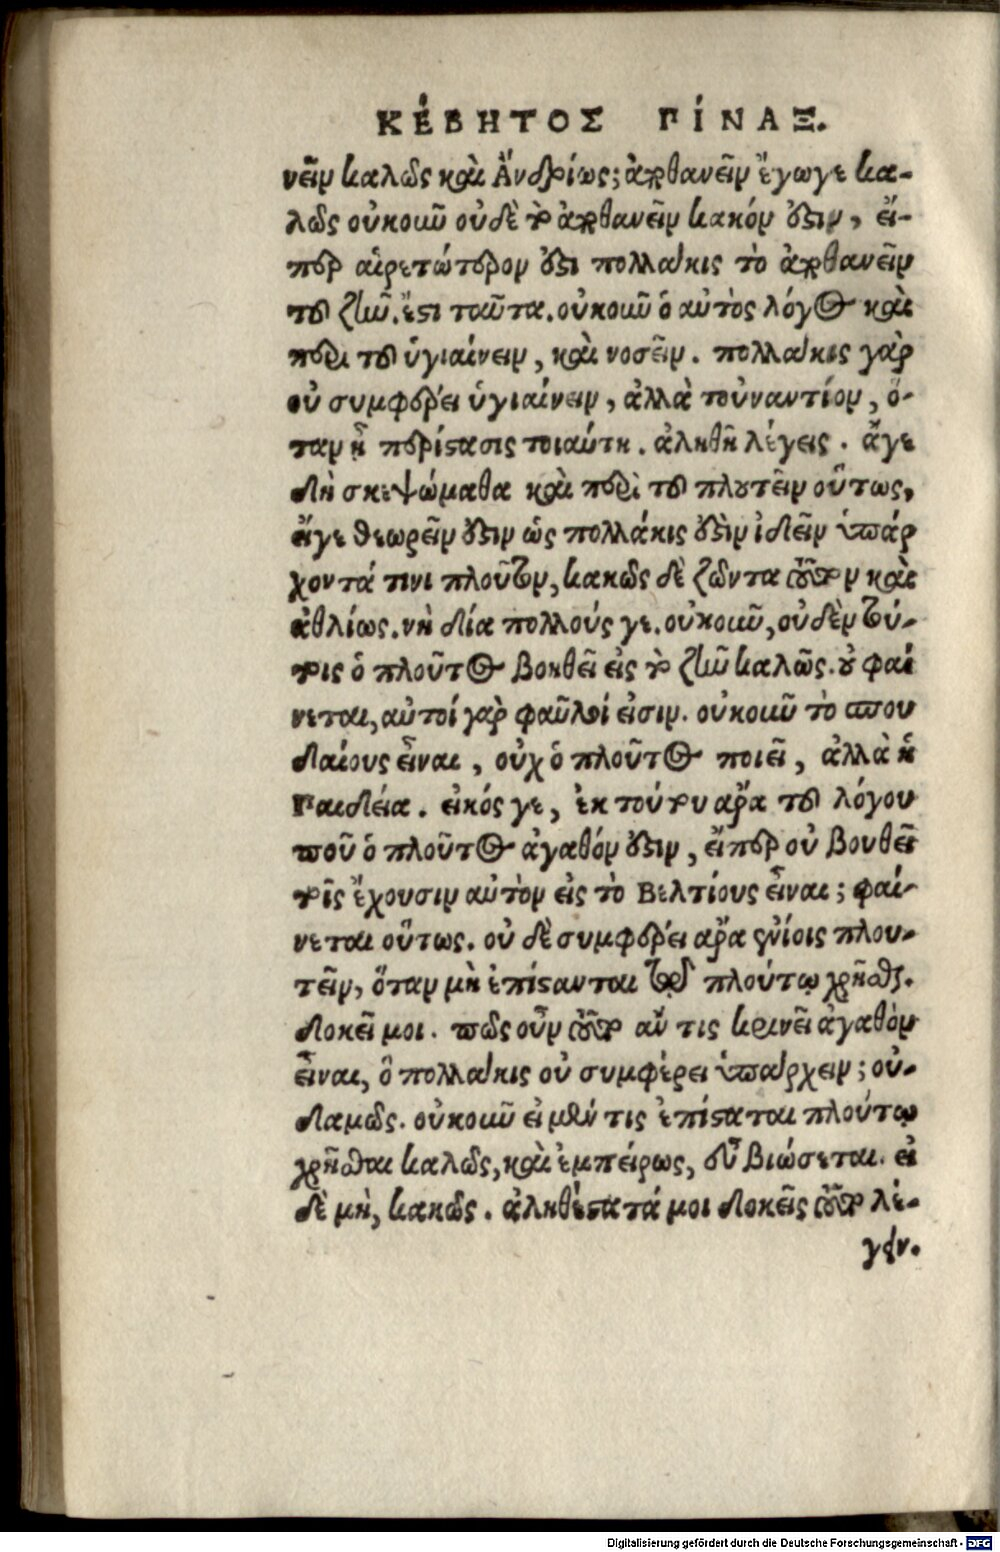 ΚΈΒΗΤΟΣ ΠΊΝΑΞ.
νεῖν καλῶς καὶ Ἀνδρίως; ἀποθανεῖν ἔγωγε κα-
λῶς οὐκοιῶ οὐδὲ τὸ ἀποθανεῖν κακόν ὅστιν, εἴ-
περ αἱρετώτερον ὅστι πολλάκις τὸ ἀποθανεῖν
τοῦ ζῆν. ἔστι ταῦτα. οὐκοιῦ ὁ αὐτὸς λόγος καὶ
περὶ τοῦ ὑγιαίνειν, καὶ νοσεῖν. πολλάκις γὰρ
οὐ συμφέρει ὑγιαίνειν, ἀλλὰ τοὐναντίον, ὅ-
ταν ᾖ περίστασις τοιαύτη. ἀληθῆ λέγεις. ἄγε
δὴ σκεψώμαθα καὶ περὶ τοῦ πλουτεῖν οὕτως,
εἴγε θεωρεῖν ἔστιν ὡς πολλάκις ἔστὶν ἰδεῖν ὑπάρ
χοντά τινι πλοῦτον, κακῶς δὲ ζῶντα τοῦτον καὶ
ἀθλίως. νὴ δία πολλούς γε. οὐκοιῦ, οὐδὲν τού-
τοις ὁ πλοῦτος βοηθεῖ εἰς τὸ ζῆν καλῶς. οὐ φαί
νεται, αὐτοί γὰρ φαῦλοί εἰσιν. οὐκοιῦ τὸ σπου
δαίους εἶναι, οὐχ ὁ πλοῦτος ποιεῖ, ἀλλὰ ἡ
Παιδεία. εἰκός γε, ἐκ τούτου ἄρα τοῦ λόγου
ποῦ ὁ πλοῦτος ἀγαθόν ἔστιν, εἴπερ οὐ βουθεῖ
τοῖς ἔχουσιν αὐτὸν εἰς τὸ Βελτίους εἶναι; φαί-
νεται οὕτως. οὐ δὲ συμφέρει ἄρα ἐνίοις πλου-
τεῖν, ὅταν μὴ ἐπίστανται τῷ πλούτῳ χρῆσθαι.
δοκεῖ μοι. πῶς οὖν τοῦτο ἄν τις κρινεῖ ἀγαθὸν
εἶναι, ὃ πολλάκις οὐ συμφέρει ὑπάρχειν; οὐ-
δαμῶς. οὐκοιῦ εἰ μέν τις ἐπίσταται πλούτῳ
χρῆσθαι καλῶς, καὶ ἐμπείρως, εὖ βιώσεται. εἰ
δὲ μὴ, κακῶς. ἀληθέστατά μοι δοκεῖς τοῦτο λέ-
γειν.
Digitalisierung gefördert durch die Deutsche Forschungsgemeinschaft - DFG